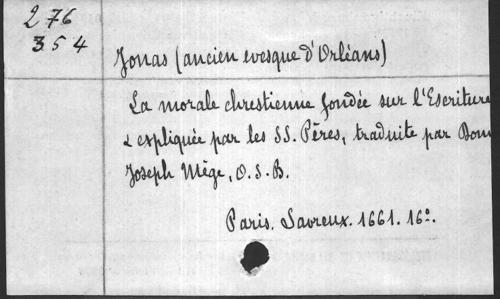 276
354
Jonas (ancien evesque d'Orléans)
La morale chrestienne fondée sur l'Escriture
& expliquée par les SS. Pères, traduite par Dom
Joseph Mège, O.S.B.
Paris. Savreux. 1661. 16º.